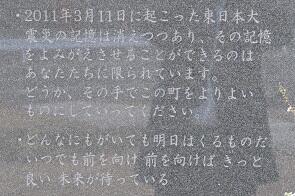 ・2011年3月11日に起こった東日本大
震災の記憶は消えつつあり、その記憶
をよみがえさせることができるのは
あなたたちに限られています。
どうか、その手でこの町をよりよい
ものにしていってください
・どんなにもがいても明日はくるものだ
いつでも前を向け 前を向けば きっと
良い 未来が待っている